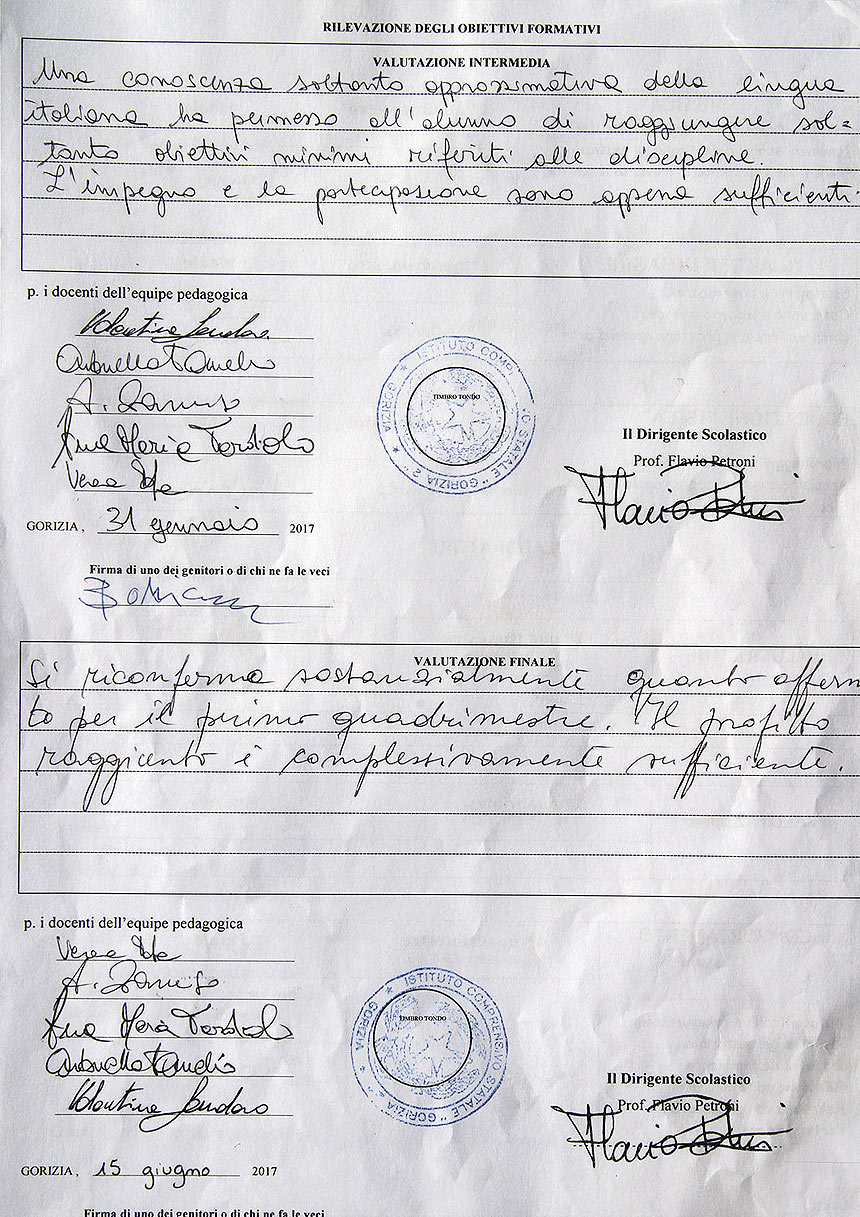 RILEVAZIONE DEGLI OBIETTIVI FORMATIVI
VALUTAZIONE INTERMEDIA
Una conoscenza soltanto approssimativa della lingua
italiana ha permesso all'alunno di raggiungere sol=
tanto obiettivi minimi riferiti alle discipline.
L'impegno e la partecipazione sono appena sufficienti.
p. i docenti dell'equipe pedagogica
Valentina
Antonella
A.
Anna Maria
ISTITUTO COMPRENSIVO STATALE "GORIZIA 2" ★ GORIZIA ★
TIMBRO TONDO
Il Dirigente Scolastico
Prof. Flavio Petroni
Flavio
GORIZIA, 31 gennaio 2017
Firma di uno dei genitori o di chi ne fa le veci
VALUTAZIONE FINALE
Si riconferma sostanzialmente quanto afferm
to per il primo quadrimestre. Il profitto
raggiunto è complessivamente sufficiente.
p. i docenti dell'equipe pedagogica
A.
Antonella
Valentina
ISTITUTO COMPRENSIVO STATALE "GORIZIA 2" ★ GORIZIA ★
TIMBRO TONDO
Il Dirigente Scolastico
Prof. Flavio Petroni
Flavio
GORIZIA, 15 giugno 2017
Firma di uno dei genitori o di chi ne fa le veci